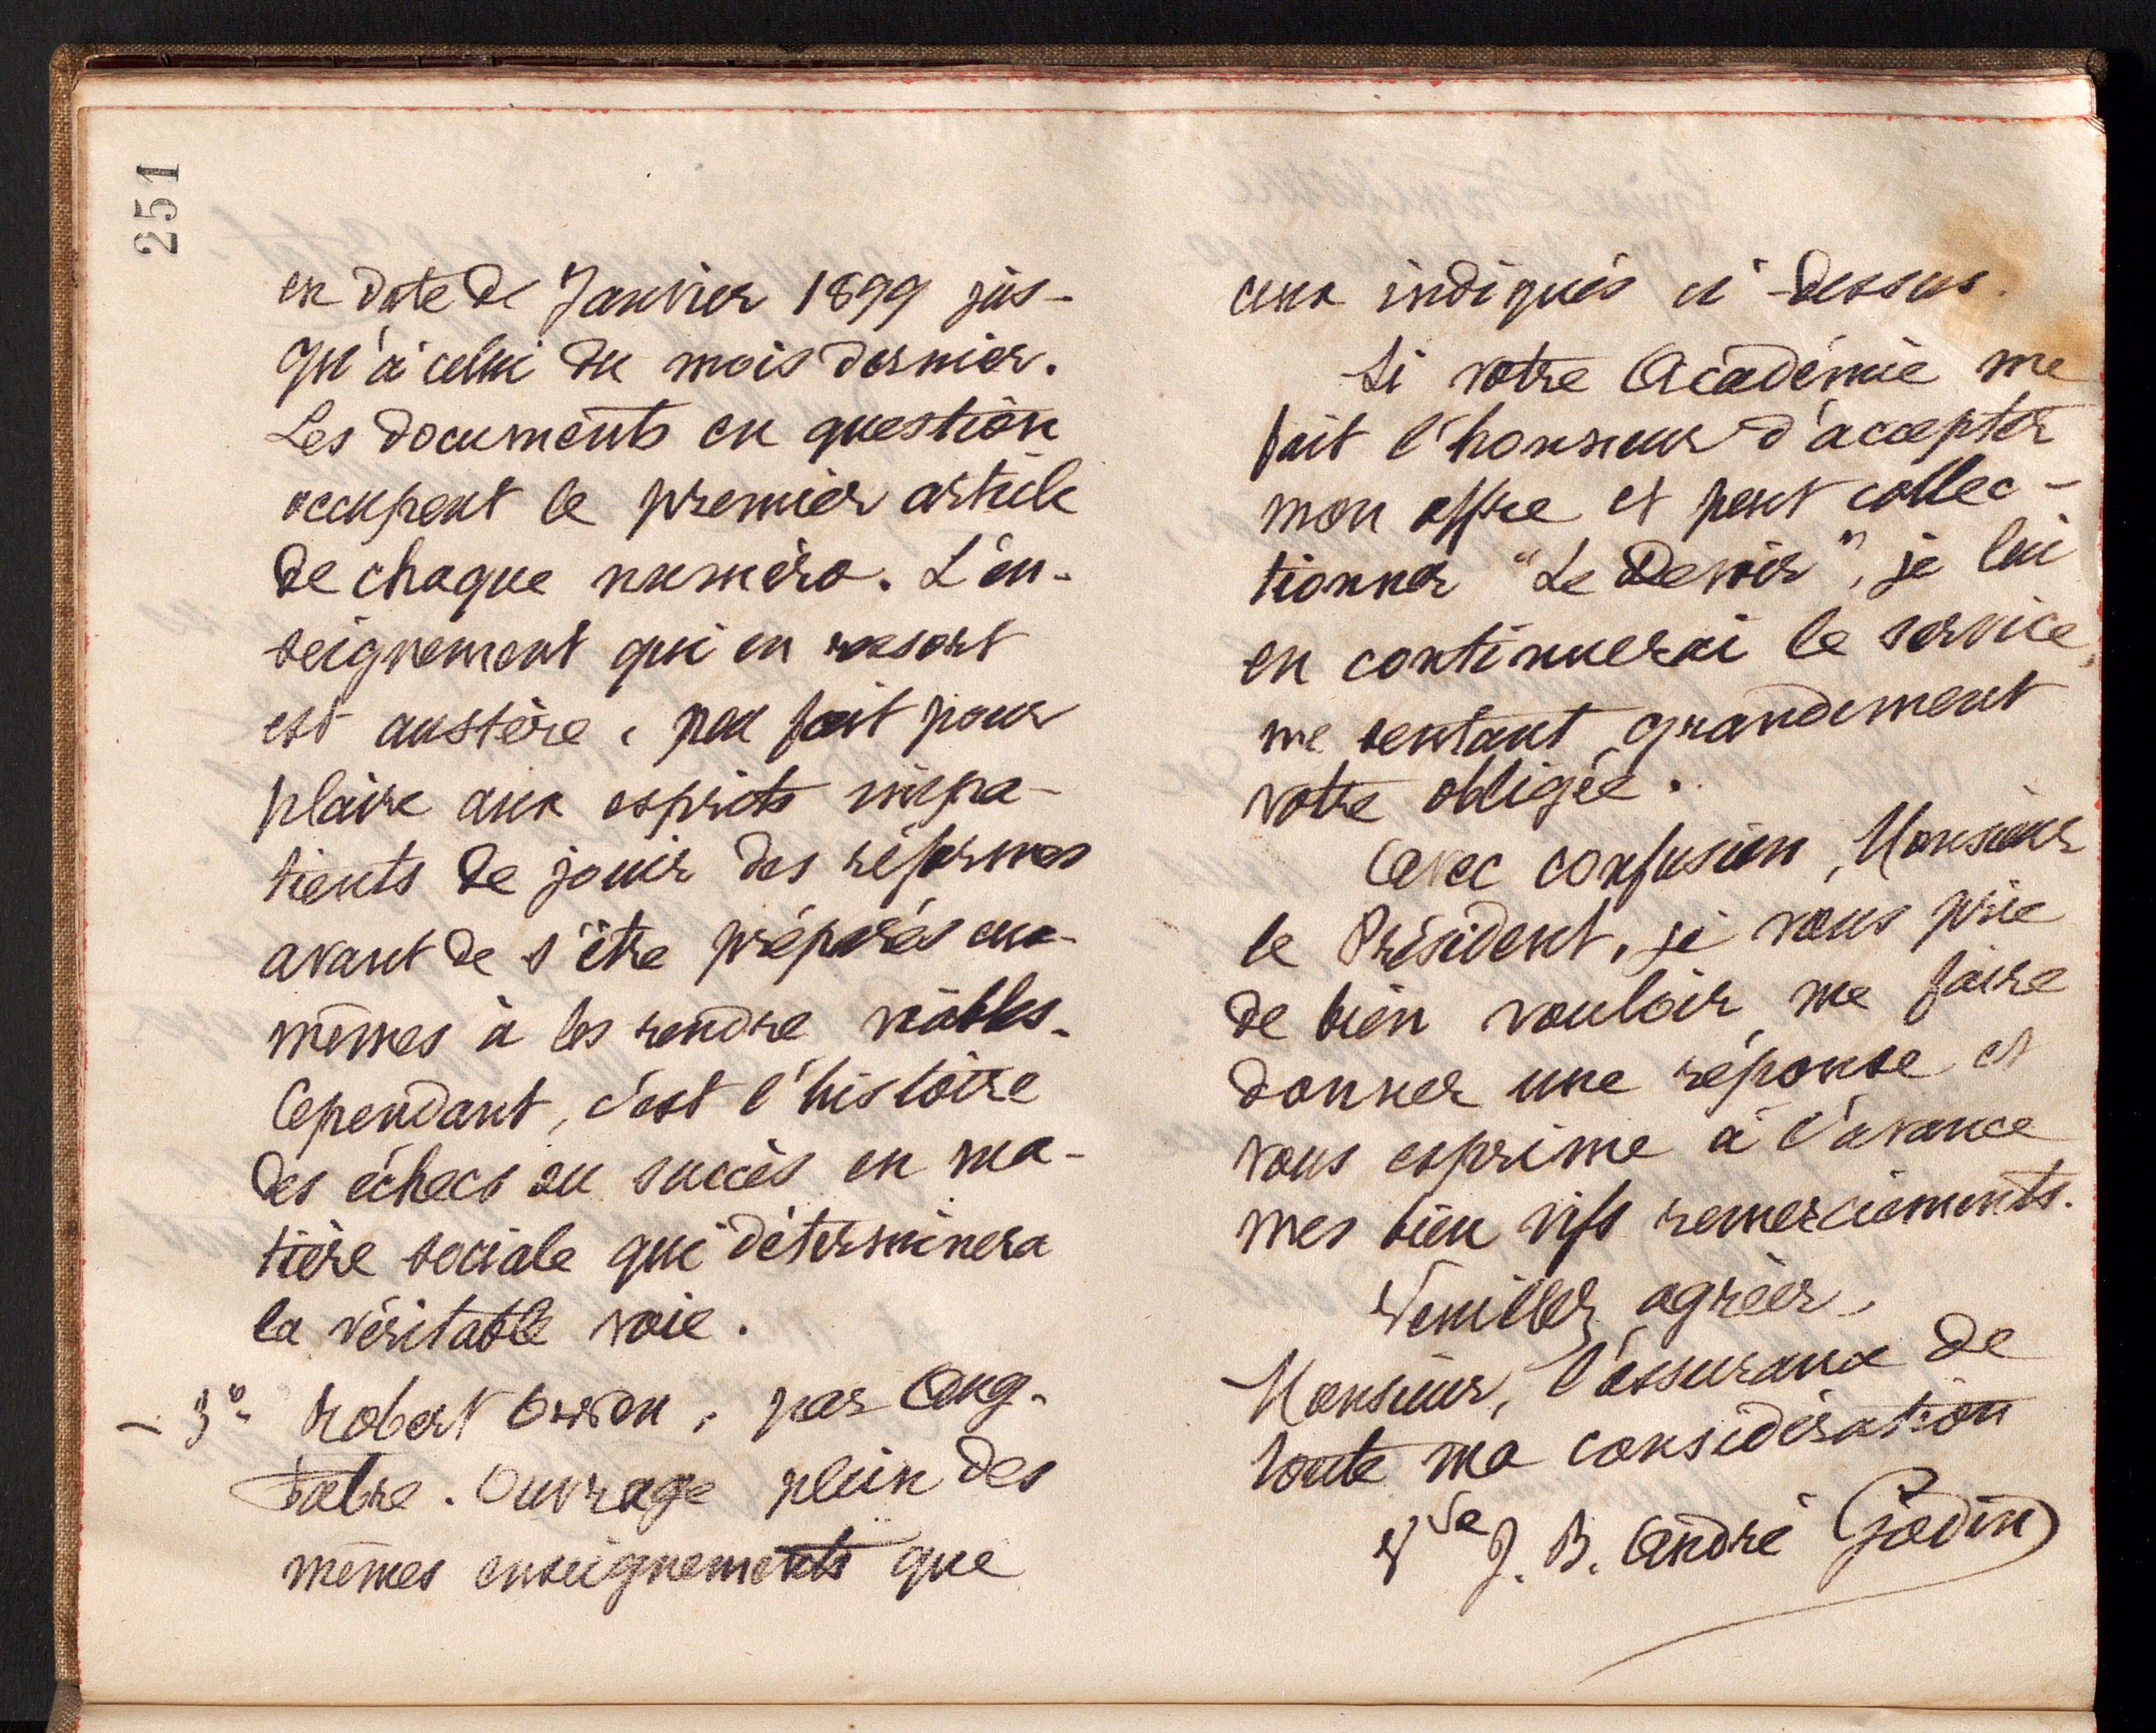 251
en date de Janvier 1899 jus-
qu'à celui du mois dernier.
Les documents en question
occupent le premier article
de chaque numéro. L'en-
seignement qui en ressort
est austère, peu fait pour
plaire aux esprits impa-
tients de jouir des réformes
avant de s'être préparés eux-
mêmes à les rendre viables.
Cependant, c'est l'histoire
des échecs ou succès en ma-
tière sociale qui déterminera
la véritable voie.
- 3° Robert Owen, par Aug.
Fabre. Ouvrage plein des
mêmes enseignements que
ceux indiqués ci-dessus.
Si votre Académie me
fait l'honneur d'accepter
mon offre et peut collec-
tionner "Le Devoir", je lui
en continuerai le service,
me sentant grandement
votre obligée.
Avec confusion, Monsieur
le Président, je vous prie
de bien vouloir me faire
donner une réponse et
vous exprime à l'avance
mes bien vifs remerciements.
Veuillez agréer,
Monsieur, l'assurance de
toute ma considération
Vve J. B. André Godin